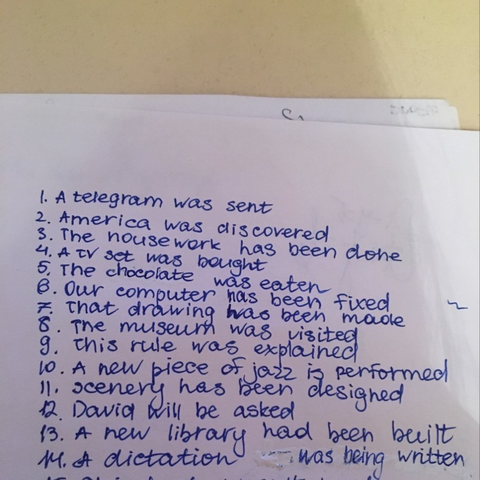 1. A telegram was sent
2. America was discovered
3. The housework has been done
4. A TV set was bought
5. The chocolate was eaten
6. Our computer has been fixed
7. That drawing has been made
8. The museum was visited
9. This rule was explained
10. A new piece of jazz is performed
11. Scenery has been designed
12. David will be asked
13. A new library had been built
14. A dictation was being written